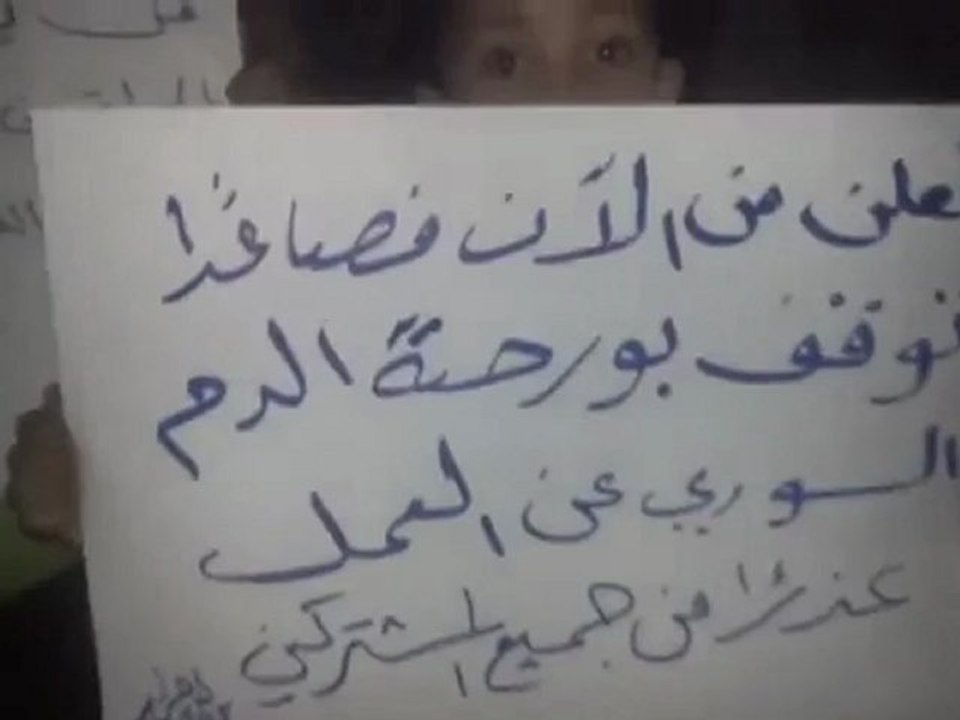 نعلن من الآن فصاعدًا
توقف بورصة الدم
السوري عن العمل
عذرًا من جميع المشتركين